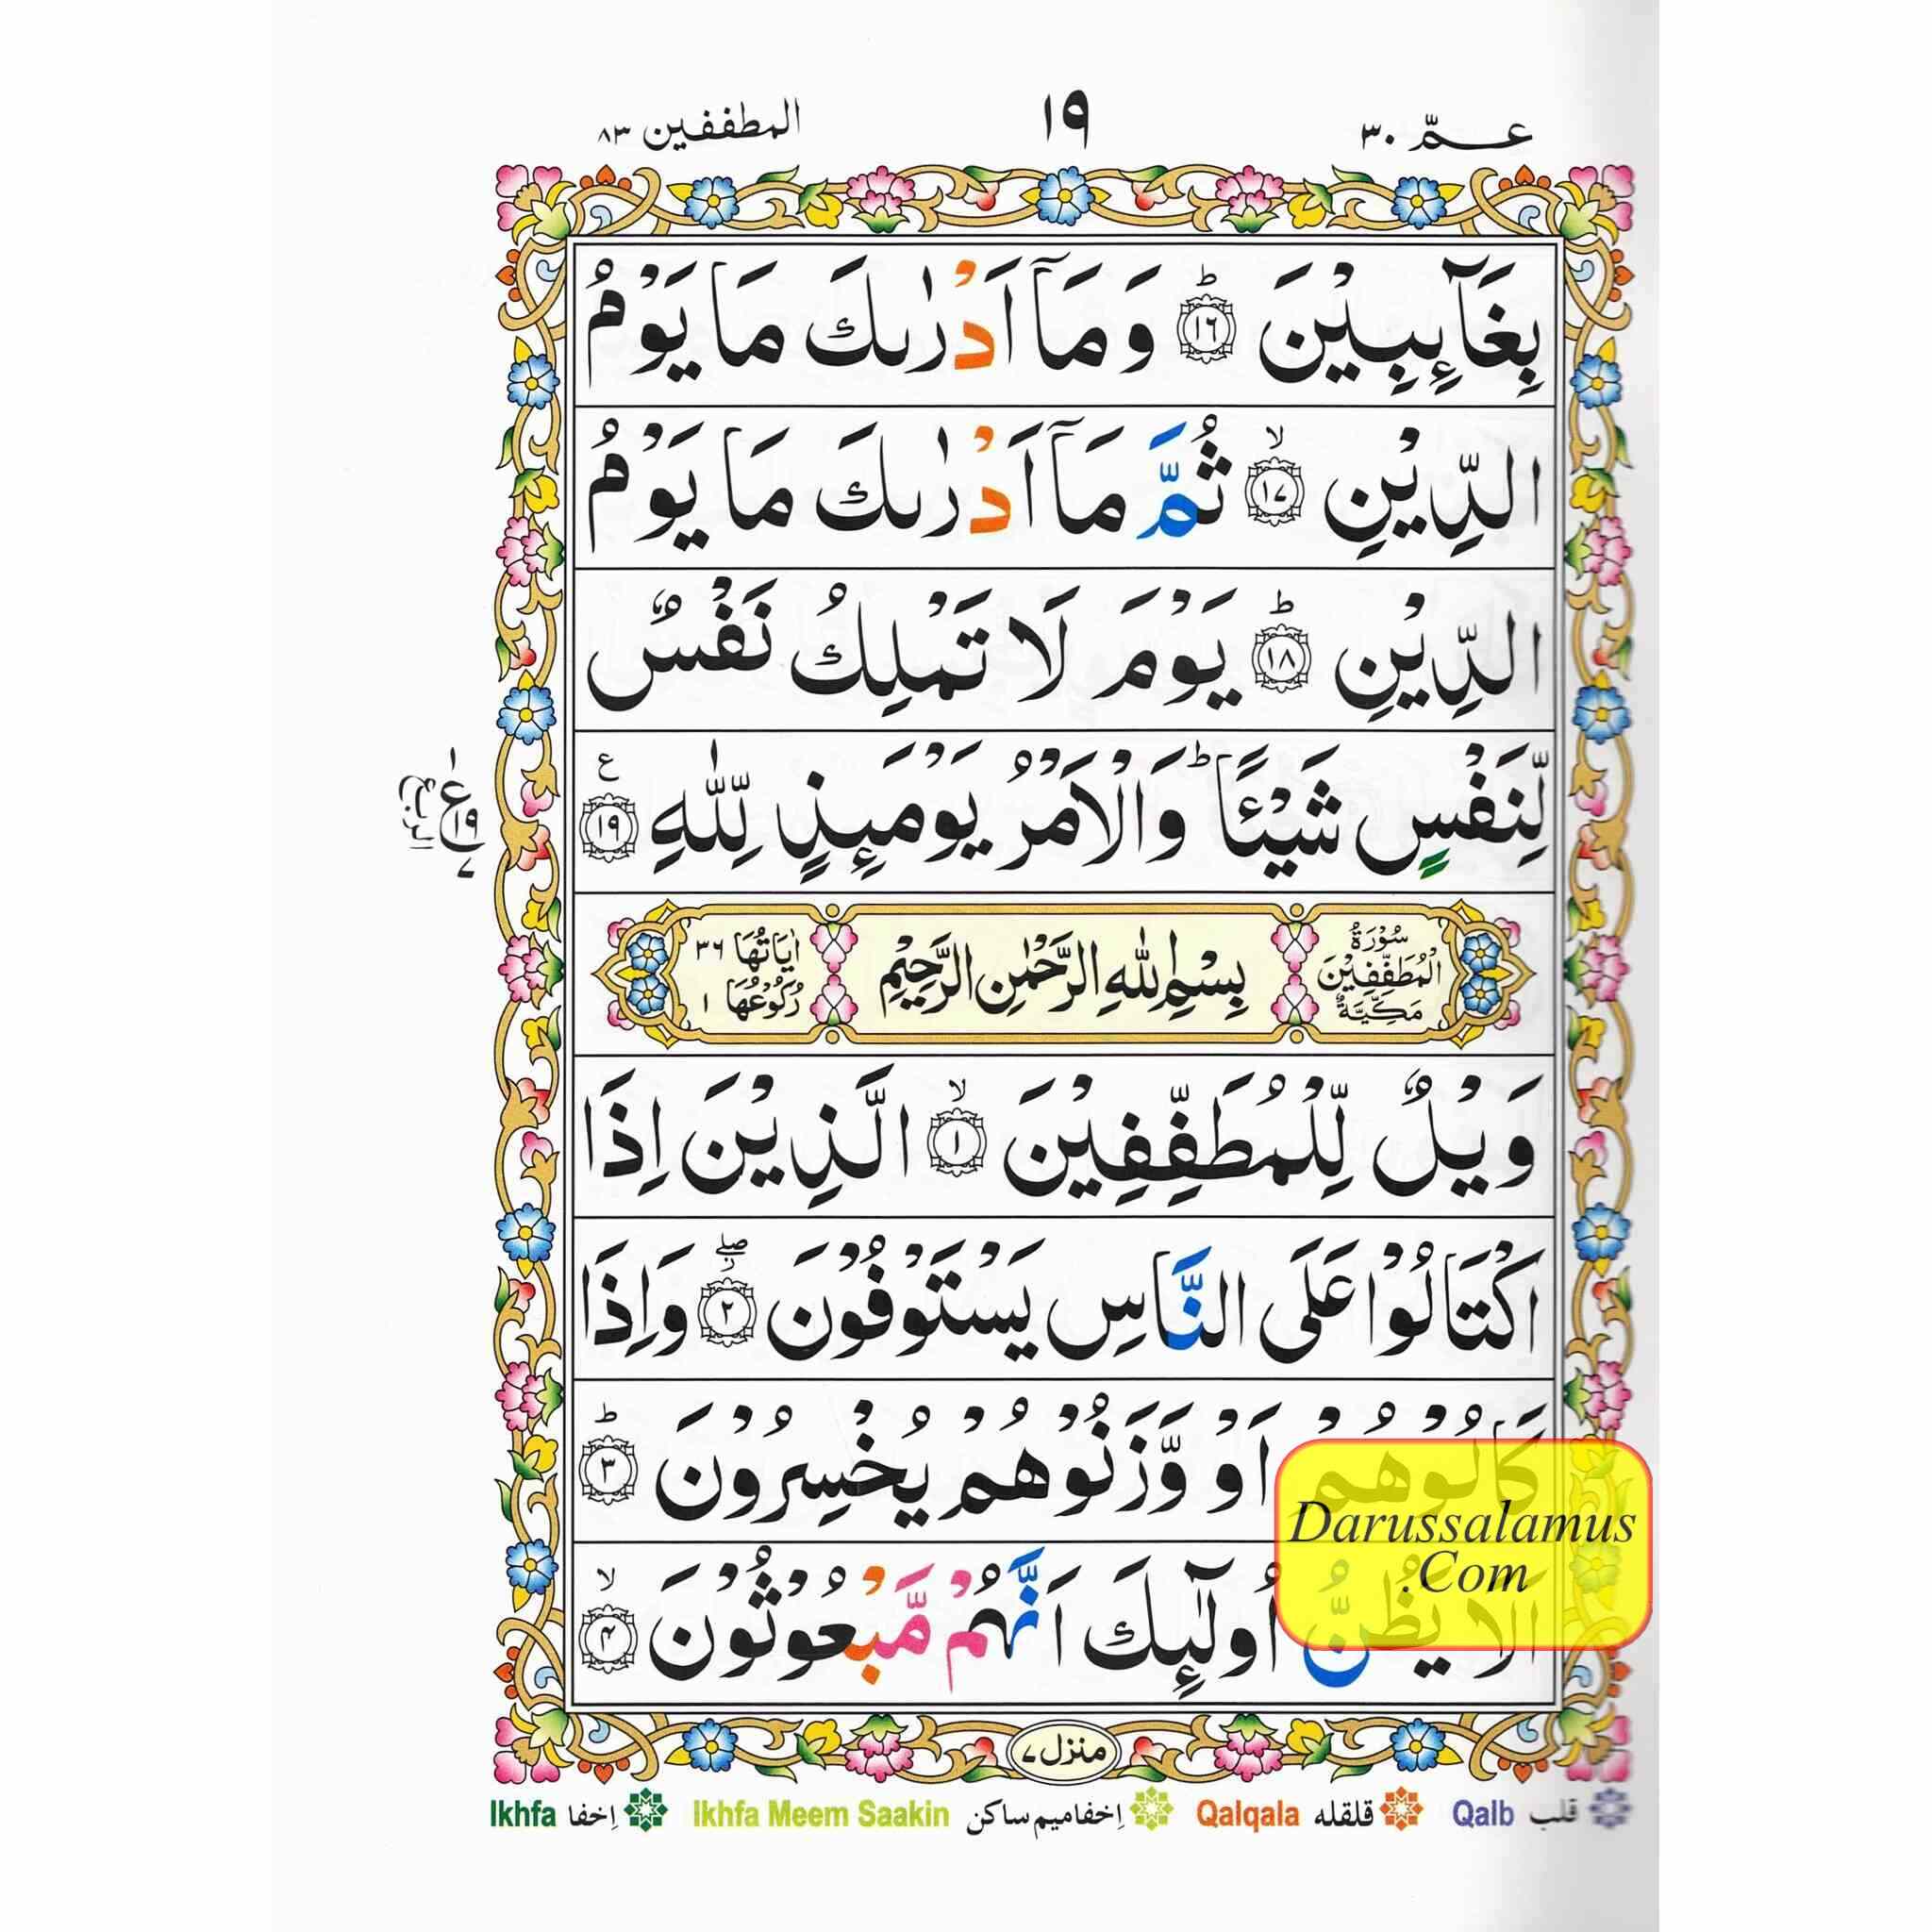 عـمّ ٣٠
١٩
المطففين ٨٣
بِغَآئِبِيْنَ ؕ ﴿١٦﴾ وَمَآ اَدْرٰىكَ مَا يَوْمُ
الدِّيْنِ ۙ ﴿١٧﴾ ثُمَّ مَآ اَدْرٰىكَ مَا يَوْمُ
الدِّيْنِ ؕ ﴿١٨﴾ يَوْمَ لَا تَمْلِكُ نَفْسٌ
لِّنَفْسٍ شَيْـًٔا ؕ وَالْاَمْرُ يَوْمَئِذٍ لِّلّٰهِ ﴿١٩﴾ ع
سُوْرَةُ الْمُطَفِّفِيْنَ مَكِّيَّةٌ
بِسْمِ اللهِ الرَّحْمٰنِ الرَّحِيْمِ
اٰيَاتُهَا ٣٦ رُكُوْعُهَا ١
وَيْلٌ لِّلْمُطَفِّفِيْنَ ۙ ﴿١﴾ الَّذِيْنَ اِذَا
اكْتَالُوْا عَلَى النَّاسِ يَسْتَوْفُوْنَ ۖ ﴿٢﴾ وَاِذَا
كَالُوْهُمْ اَوْ وَّزَنُوْهُمْ يُخْسِرُوْنَ ؕ ﴿٣﴾
اَلَا يَظُنُّ اُولٰٓئِكَ اَنَّهُمْ مَّبْعُوْثُوْنَ ۙ ﴿٤﴾
Darussalamus
.Com
منزل ٧
قلب Qalb قلقله Qalqala اِخفا ميم ساكن Ikhfa Meem Saakin اِخفا Ikhfa